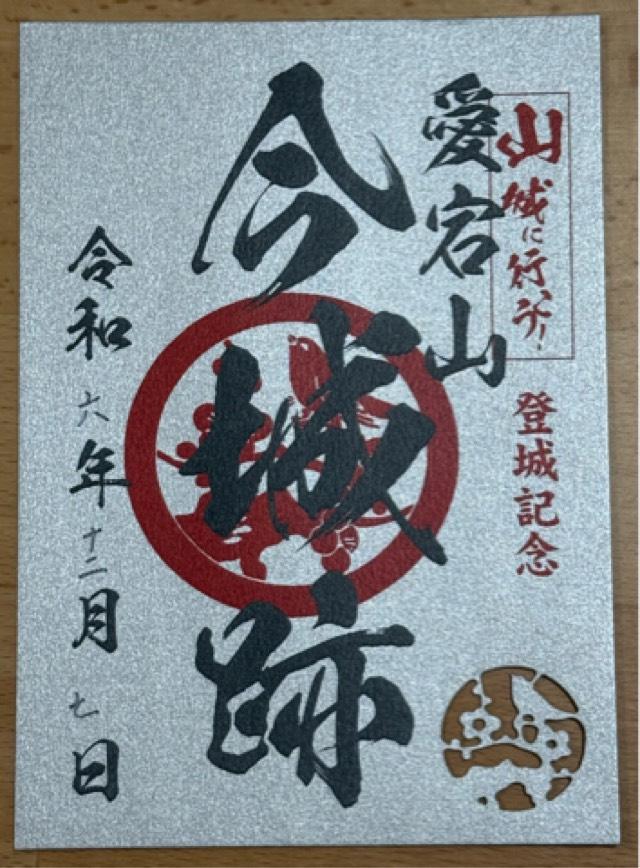 山城に行べ!
登城記念
愛宕山
今城跡
令和六年十二月七日